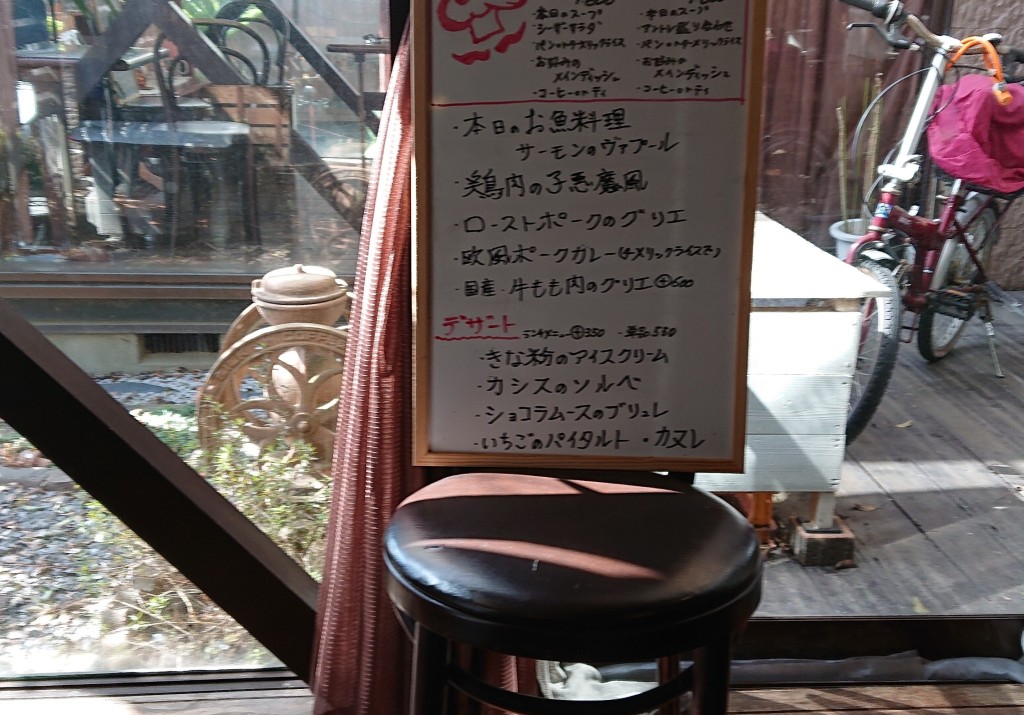 本日のスープ
シーザーサラダ
パンorチメリックライス
お好みの
メインディッシュ
コーヒーorティ
本日のスープ
オントレ盛り合わせ
パンorチメリックライス
お好みの
メインディッシュ
コーヒーorティ
・本日のお魚料理
サーモンのヴァプール
・鶏肉の子悪魔風
・ローストポークのグリエ
・欧風ポークカレー(チメリックライスで)
・国産 牛もも肉のグリエ⊕600
デザート ランチメニュー⊕350 ・単品550
・きな粉のアイスクリーム
・カシスのソルベ
・ショコラムースのブリュレ
・いちごのパイタルト ・カヌレ